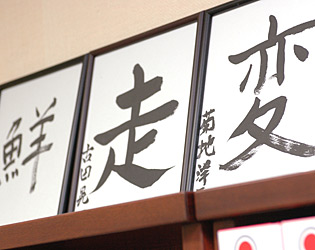 鮮
走
古田晃
変
菊地洋